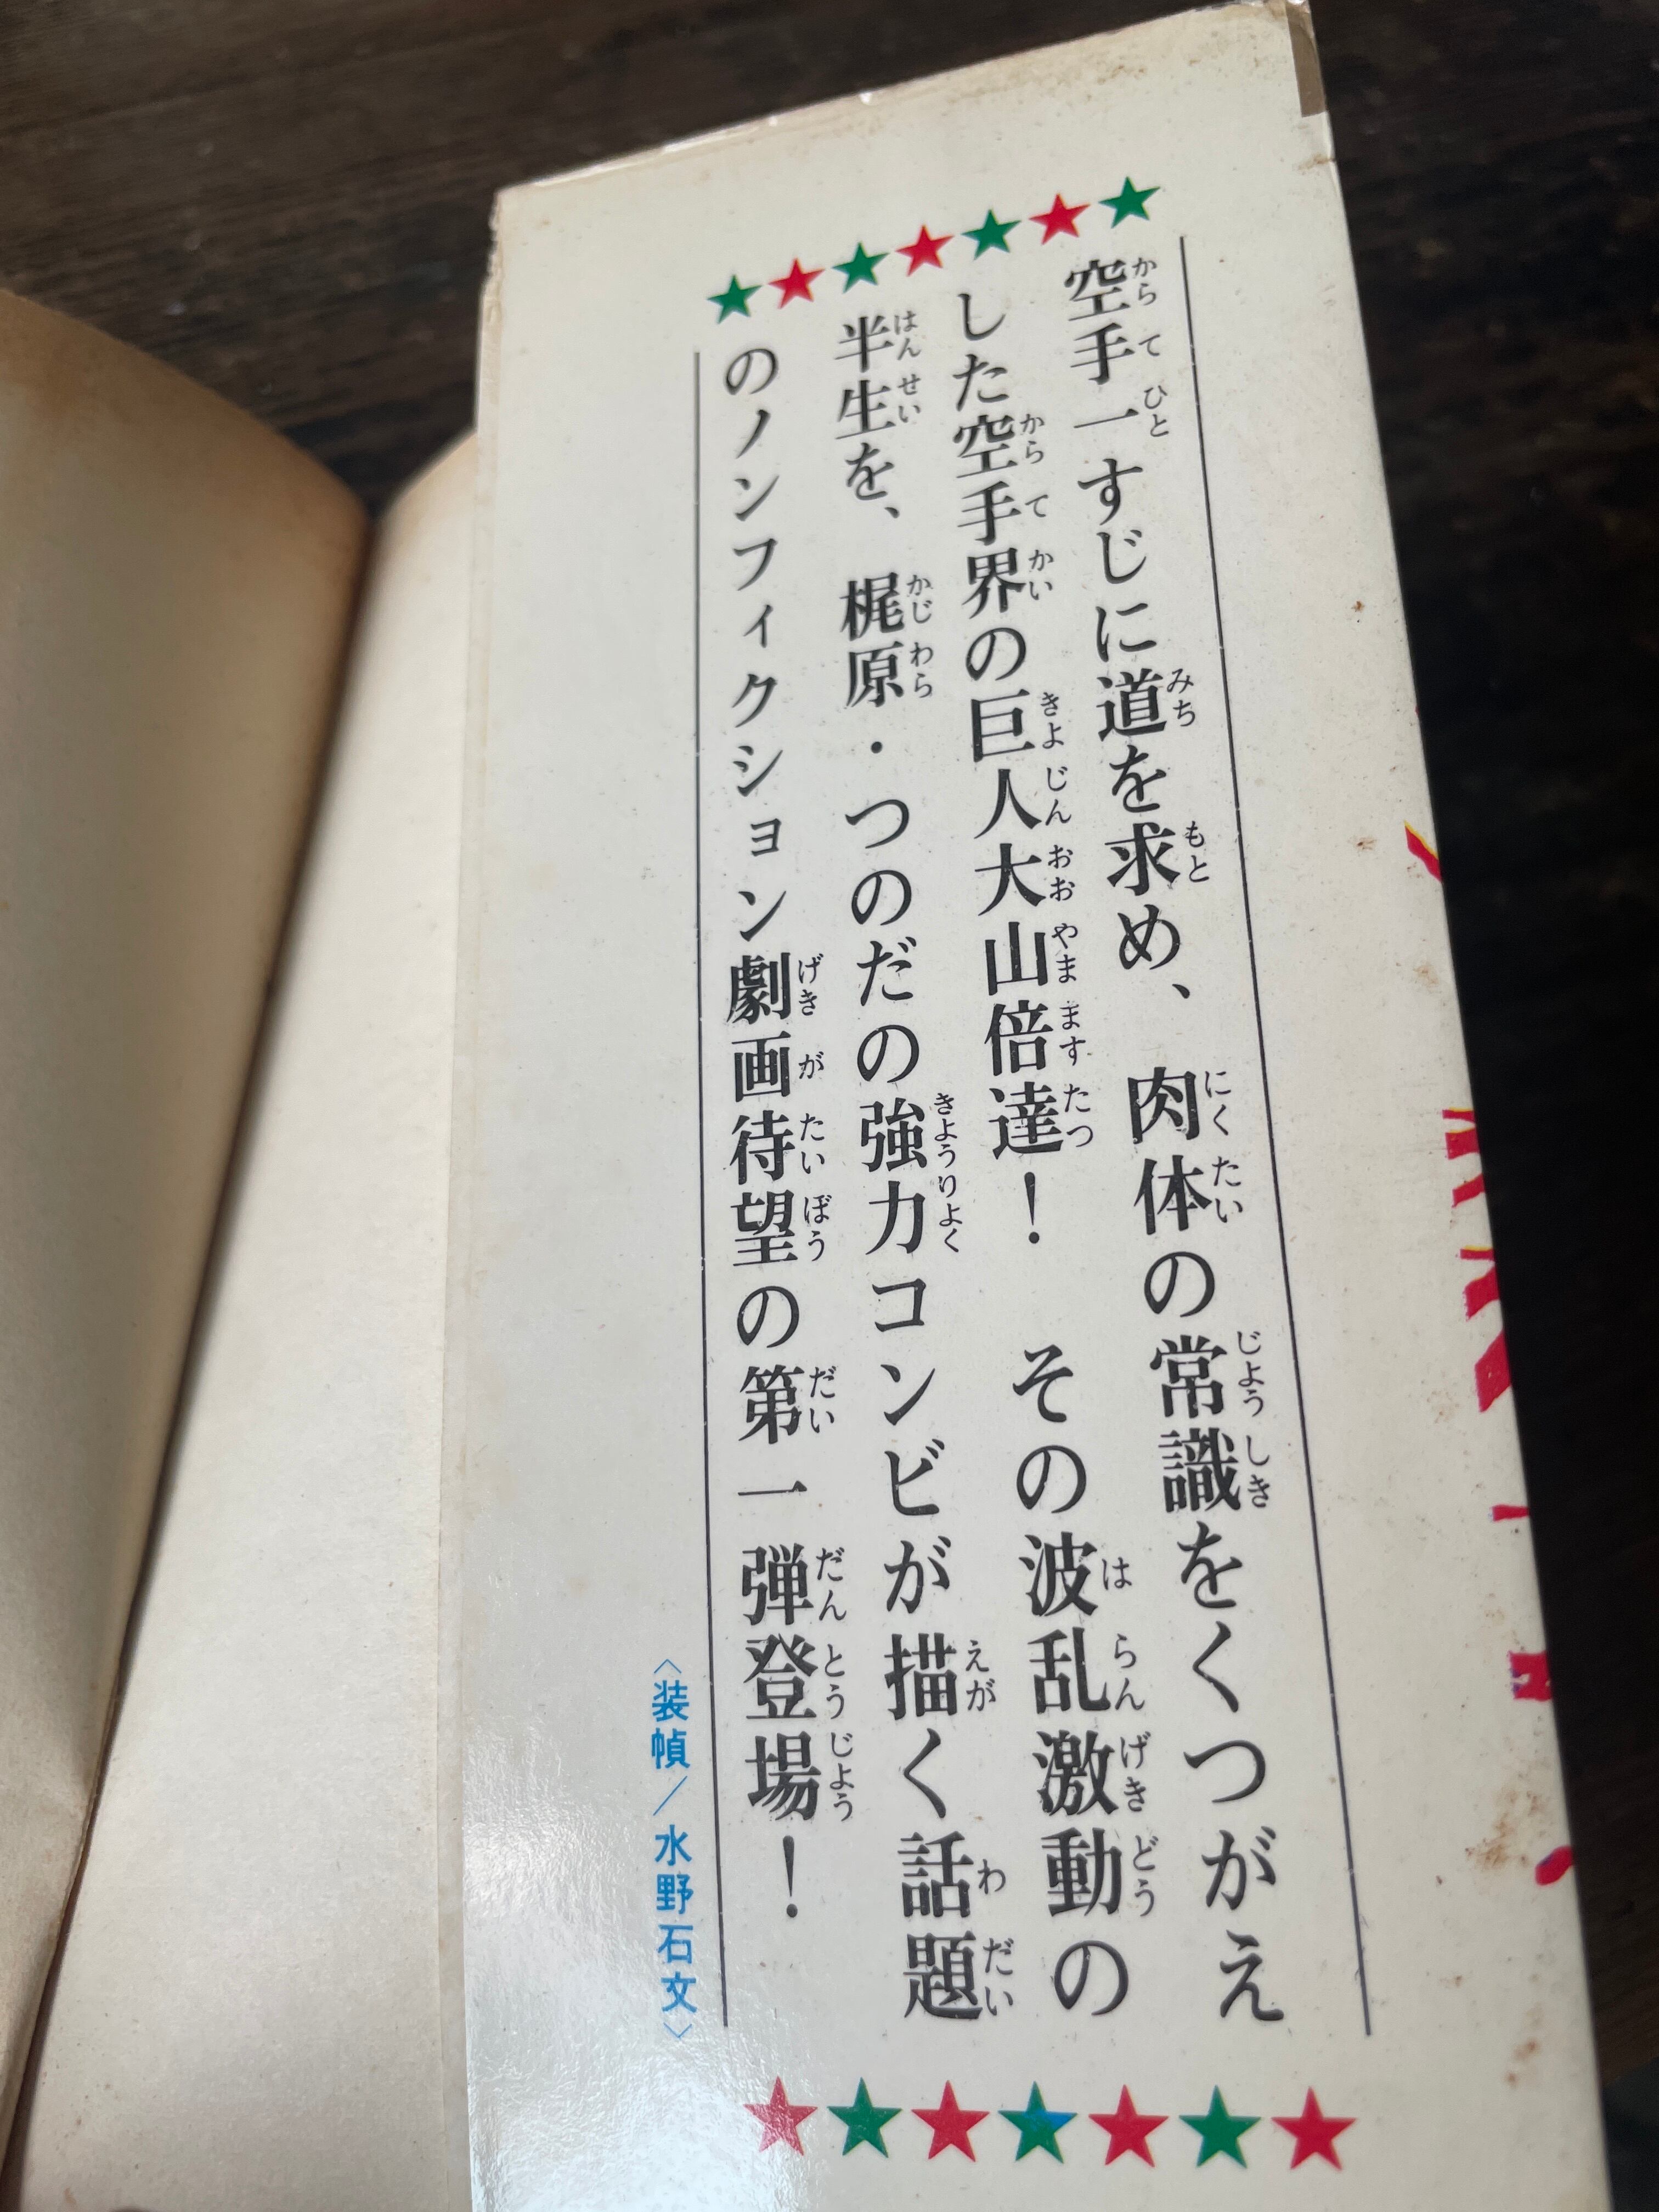 空手一すじに道を求め、肉体の常識をくつがえ
した空手界の巨人大山倍達！その波乱激動の
半生を、梶原・つのだの強力コンビが描く話題
のノンフィクション劇画待望の第一弾登場！
〈装幀/水野石文〉